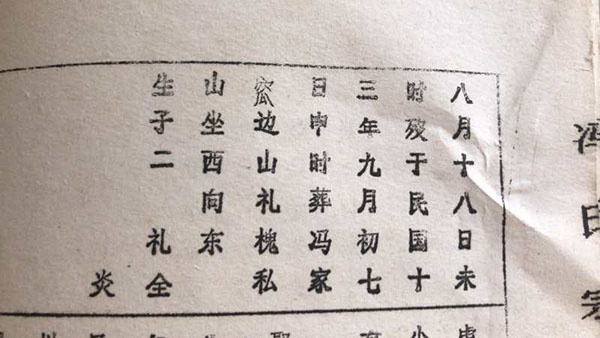 八月十八日未
时殁于民国十
三年九月初七
日申时葬冯家
窊边山礼槐私
山坐西向东
生子二 礼全
炎